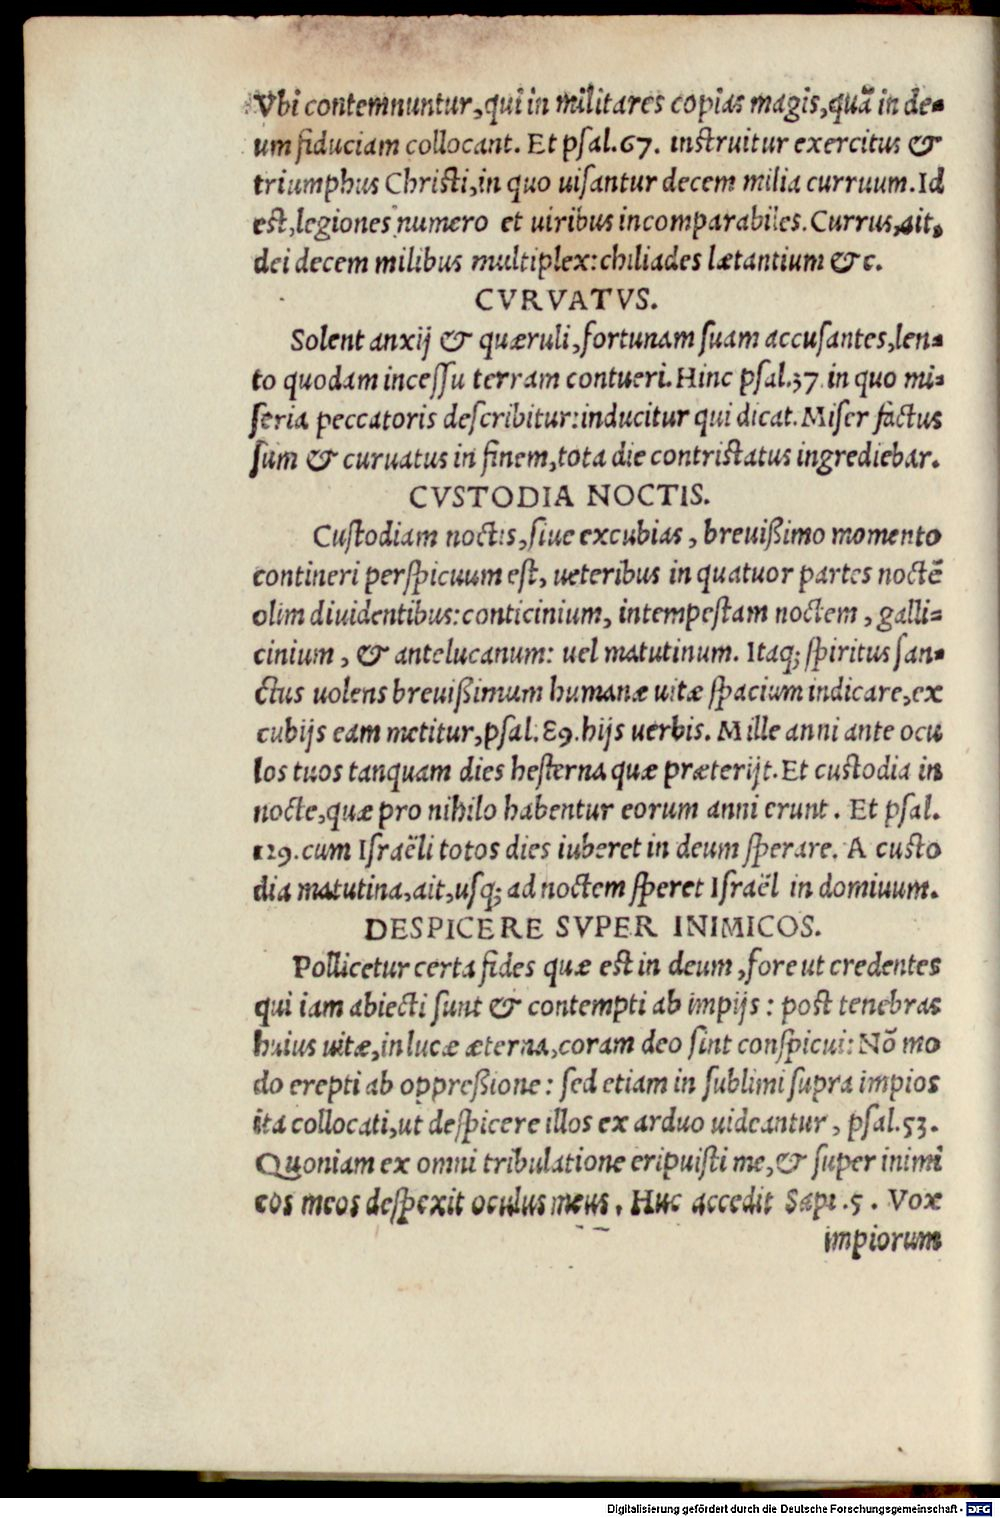 Vbi contemnuntur, qui in militares copias magis, quā in de-
um fiduciam collocant. Et psal. 67. instruitur exercitus &
triumphus Christi, in quo uisantur decem milia curruum. Id
est, legiones numero et uiribus incomparabiles. Currus, ait,
dei decem milibus multiplex: chiliades lætantium & c.
CVRVATVS.
Solent anxij & quæruli, fortunam suam accusantes, len-
to quodam incessu terram contueri. Hinc psal. 37 in quo mi-
seria peccatoris describitur: inducitur qui dicat. Miser factus
sum & curuatus in finem, tota die contristatus ingrediebar.
CVSTODIA NOCTIS.
Custodiam noctis, siue excubias, breuißimo momento
contineri perspicuum est, ueteribus in quatuor partes noctē
olim diuidentibus: conticinium, intempestam noctem, galli-
cinium, & antelucanum: uel matutinum. Itaq; spiritus san-
ctus uolens breuißimum humanæ uitæ spacium indicare, ex
cubijs eam metitur, psal. 89. hijs uerbis. Mille anni ante ocu
los tuos tanquam dies hesterna quæ præterijt. Et custodia in
nocte, quæ pro nihilo habentur eorum anni erunt. Et psal.
129. cum Israëli totos dies iuberet in deum sperare. A custo
dia matutina, ait, usq; ad noctem speret Israël in domiuum.
DESPICERE SVPER INIMICOS.
Pollicetur certa fides quæ est in deum, fore ut credentes
qui iam abiecti sunt & contempti ab impijs: post tenebras
huius uitæ, in lucæ æterna, coram deo sint conspicui: Nō mo
do erepti ab oppreßione: sed etiam in sublimi supra impios
ita collocati, ut despicere illos ex arduo uideantur, psal. 53.
Quoniam ex omni tribulatione eripuisti me, & super inimi
cos meos despexit oculus meus. Huc accedit Sapi. 5. Vox
impiorum
Digitalisierung gefördert durch die Deutsche Forschungsgemeinschaft - DFG